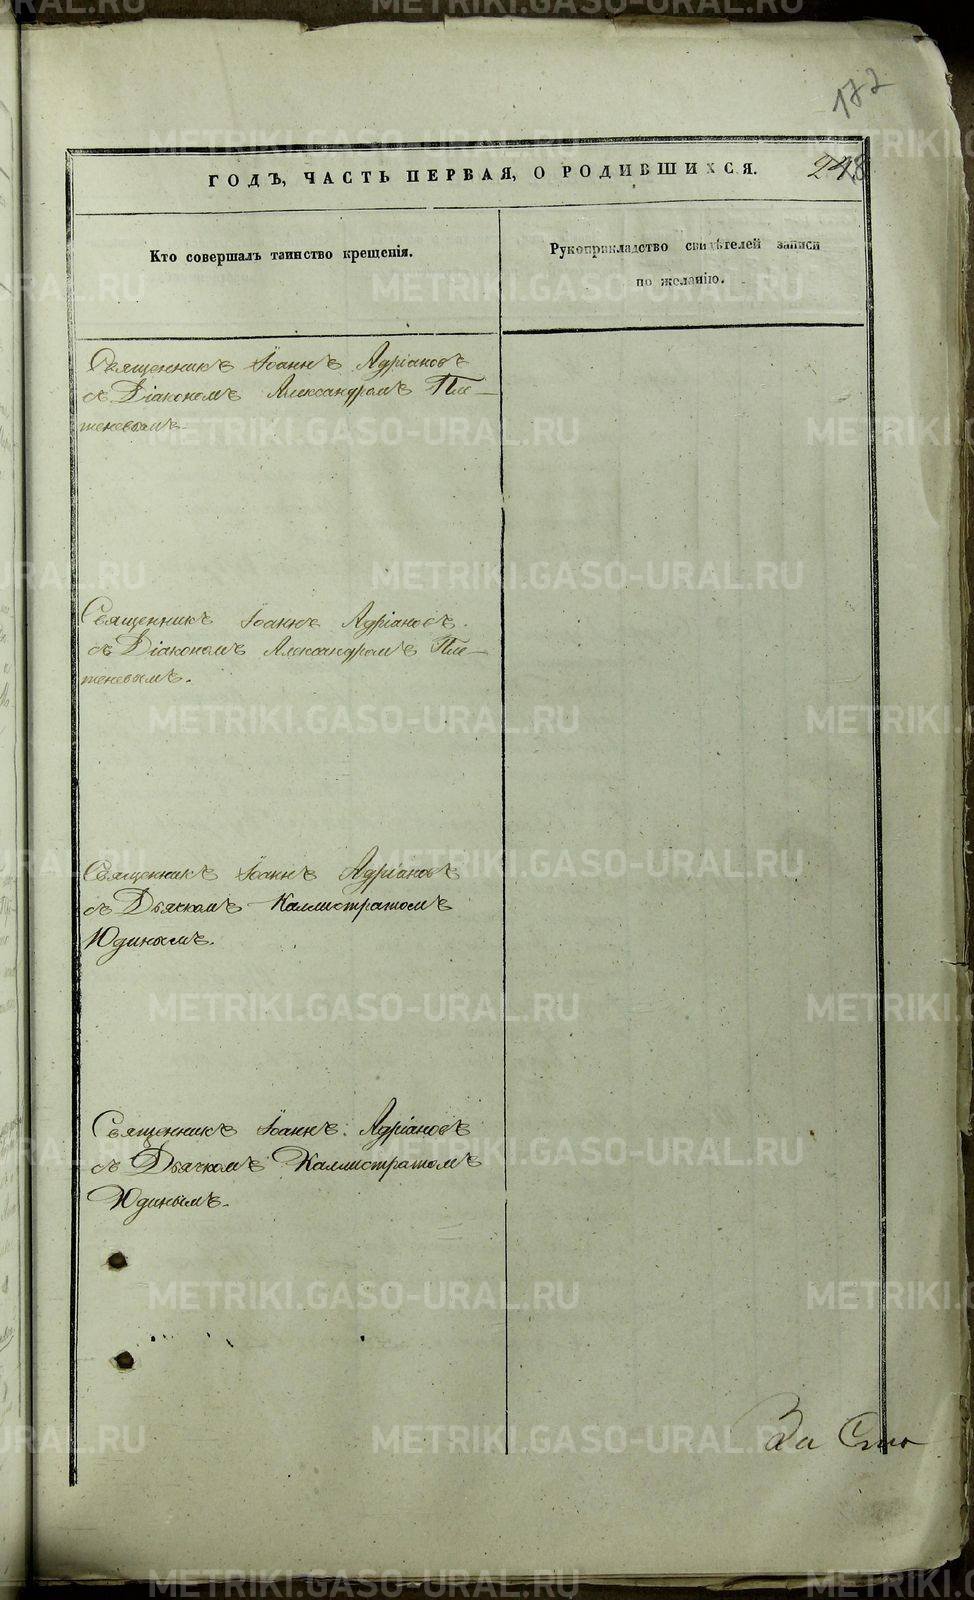 177
ГОДЪ, ЧАСТЬ ПЕРВАЯ, О РОДИВШИХСЯ.
248
Кто совершалъ таинство крещенія.
Рукоприкладство свидѣтелей записи
по желанію.
Священникъ Іоаннъ Адріановъ
съ Діакономъ Александромъ Пле-
теневымъ.
Священникъ Іоаннъ Адріановъ.
съ Діакономъ Александромъ Пле-
теневымъ.
Священникъ Іоаннъ Адріановъ
съ Дьячкомъ Каллистратомъ
Юдинымъ.
Священникъ Іоаннъ Адріановъ
съ Дьячкомъ Каллистратомъ
Юдинымъ.
METRIKI.GASO-URAL.RU